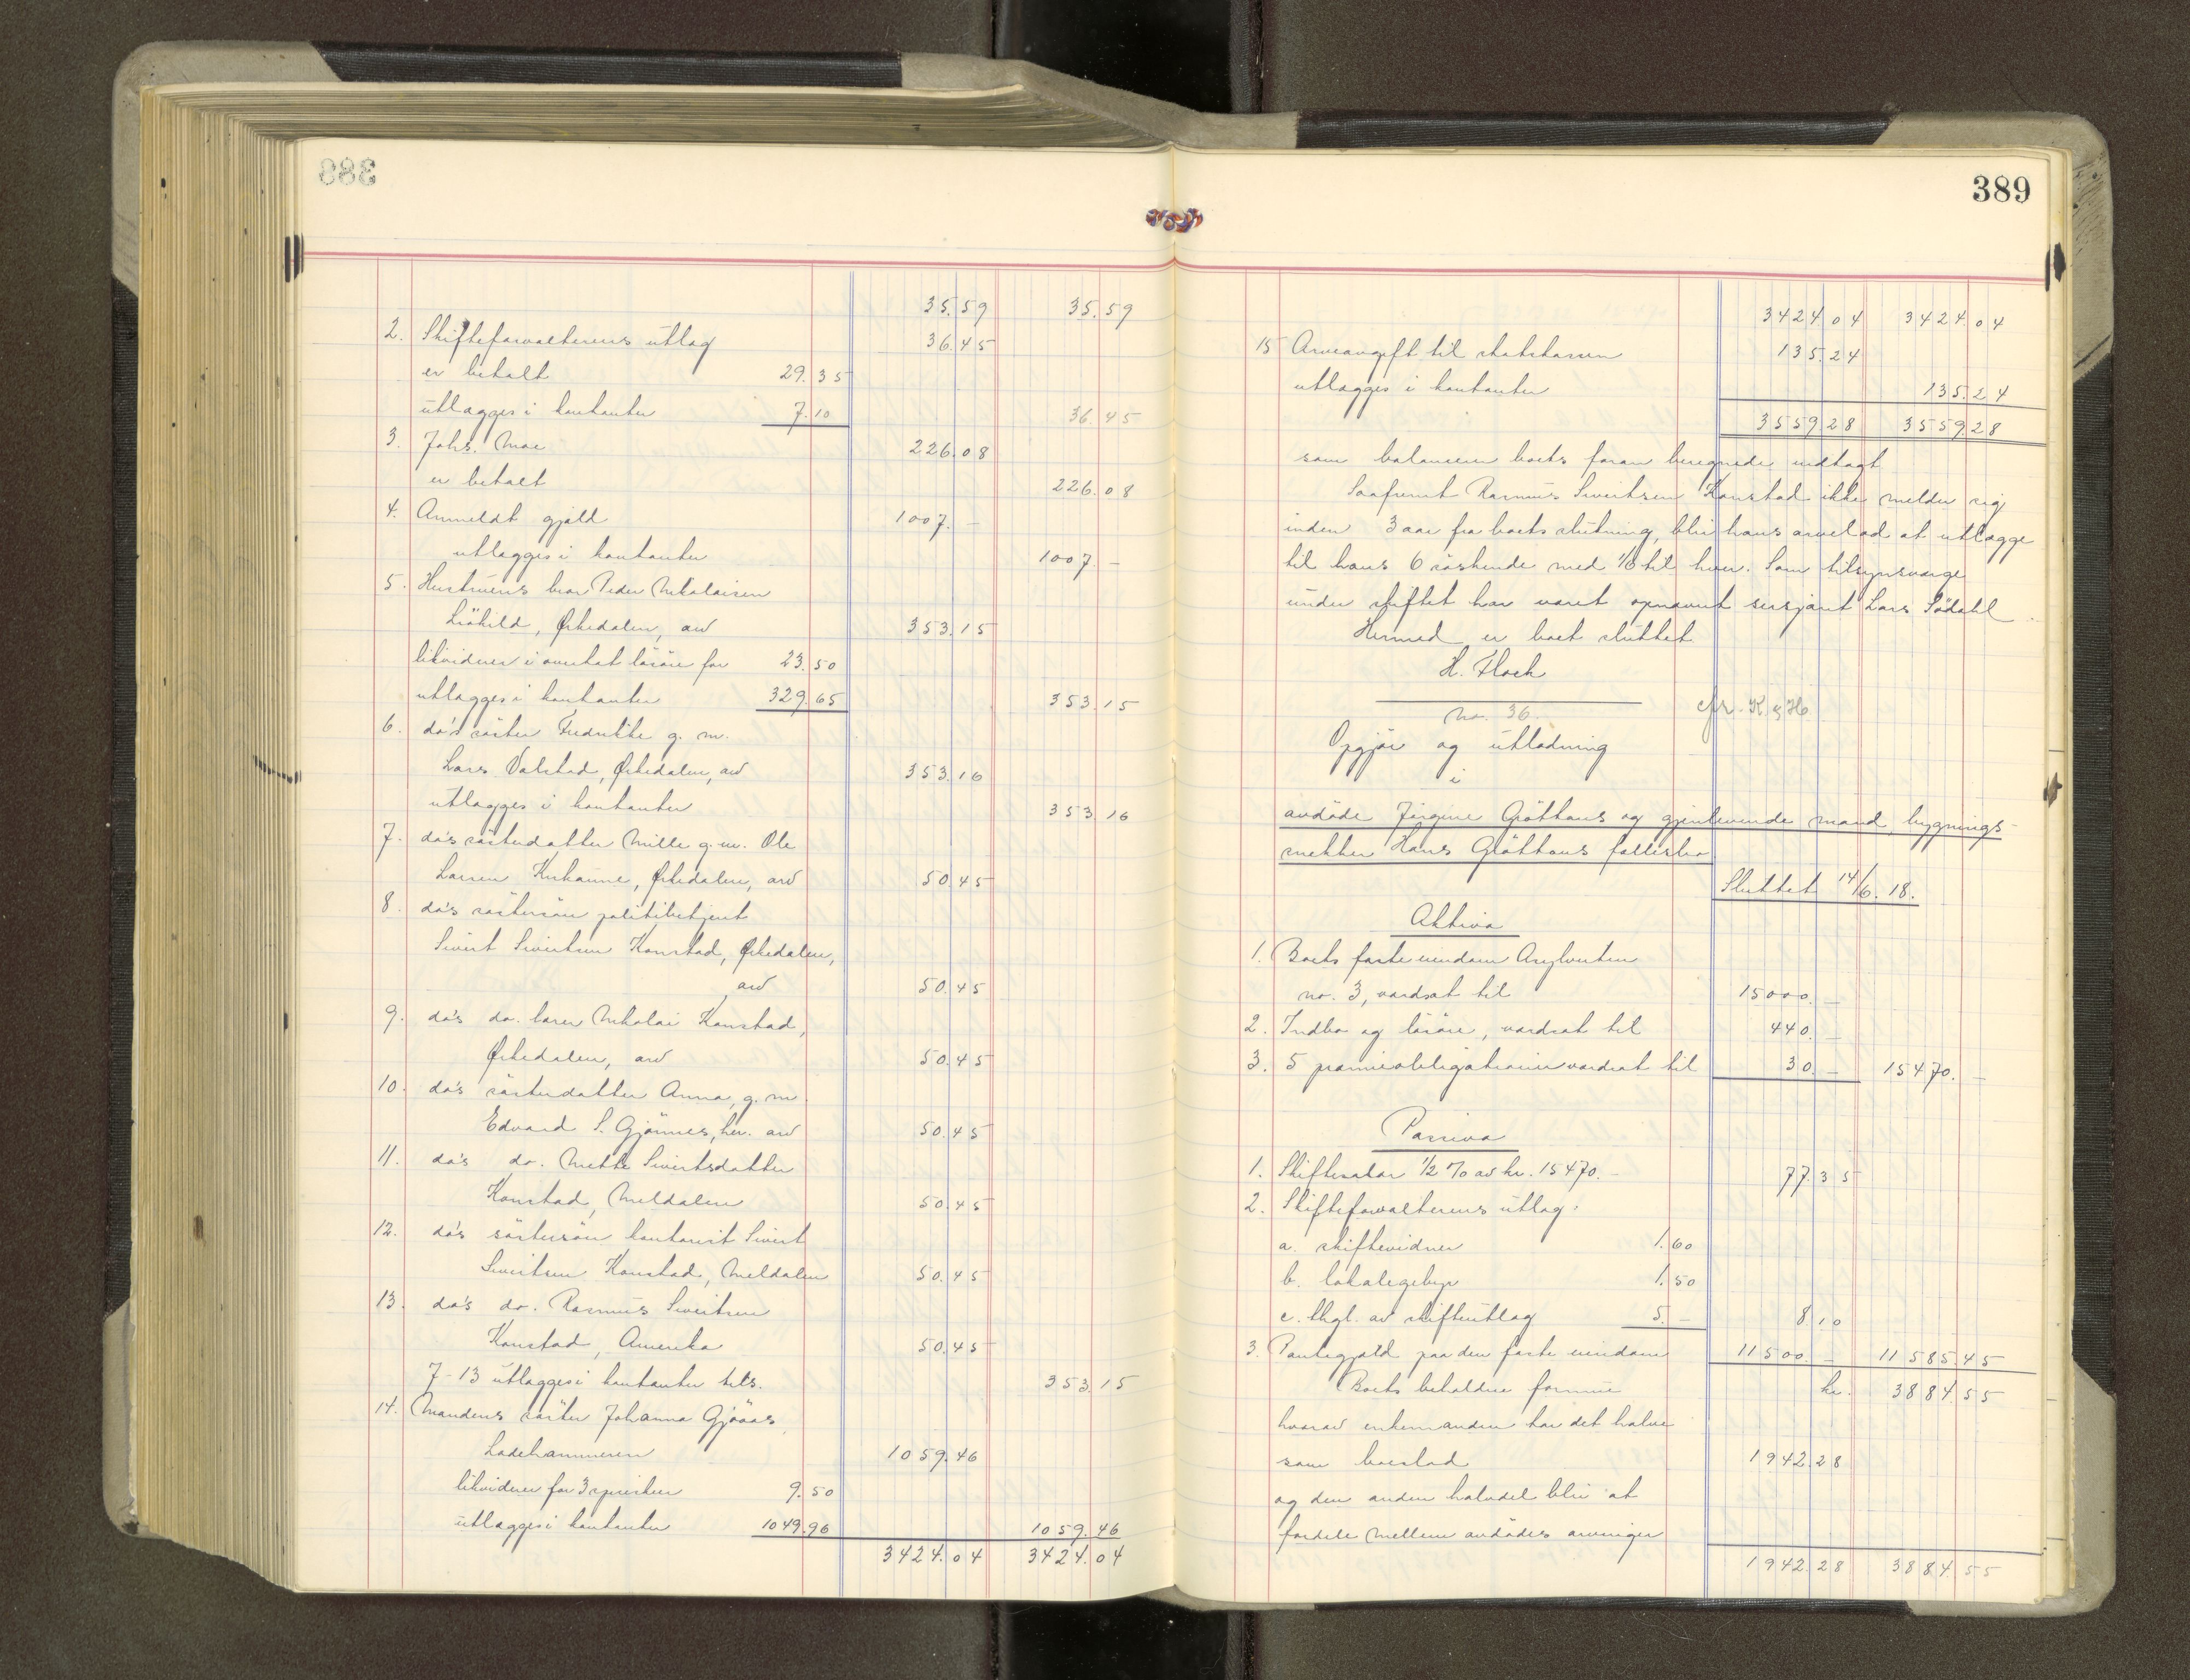 35.59 35.59
2. Skifteforvalterens utlæg 36.45
er betalt 29.35
utlægges i kontanter 7.10 36.45
3. Johs. Moe 226.08
er betalt 226.08
4. Anmeldt gjæld 1007.-
utlægges i kontanter 1007.-
5. Hustruens bror Peder Nikolaisen
Liøkild, Ørkedalen, arv 353.15
likviderer i overtat løsøre for 23.50
utlægges i kontanter 329.65 353.15
6. do's søster Fredrikke g. m.
Lars Valstad, Ørkedalen, arv 353.16
utlægges i kontanter 353.16
7. do's søsterdatter Mille g.m. Ole
Larsen Kuhaune, Ørkedalen, arv 50.45
8. do's søstersøn politibetjent
Sivert Sivertsen Konstad, Ørkedalen,
arv 50.45
9. do's do. lærer Nikolai Konstad,
Ørkedalen, arv 50.45
10. do's søsterdatter Anna, g. m.
Edvard S. Gjønnes, her. arv 50.45
11. do's do. Mette Sivertsdatter
Konstad, Meldalen 50.45
12. do's søstersøn kontorist Sivert
Sivertsen Konstad, Meldalen 50.45
13. do's do. Rasmus Sivertsen
Konstad, Amerika 50.45
7-13 utlægges i kontanter tils. 353.15
14. Mandens søster Johanna Gjøaas,
Ladehammeren 1059.46
likviderer for 3 spirition 9.50
utlægges i kontanter 1049.96 1059.46
3424.04 3424.04
389
3424.04 3424.04
15 Arveavgift til statskassen 135.24
utlægges i kontanter 135.24
3559.28 3559.28
som balancerer boets foran beregnede indtægt
Saafremt Rasmus Sivertsen Konstad ikke melder sig
inden 3 aar fra boets slutning, blir hans arvelod at utlægge
til hans 6 søskende med 1/6 til hver. Som tilsynsværge
under skiftet har været opnævnt sersjant Lars Sødahl.
Hermed er boet sluttet
H. Floch
no. 36. cfr. K & H
Opgjør og utlodning
i
avdøde Jørgine Grøthaus og gjenlevende mand, bygnings-
snekker Hans Grøthaus fællesbo
Sluttet 14/6. 18.
Aktiva
1. Boets faste eiendom Asylveiten
no. 3, værdsat til 15000.-
2. Indbo og løsøre, værdsat til 440.-
3. 5 præmieobligationer værdsat til 30.- 15470.-
Passiva
1. Skiftesalær 1/2 % av kr. 15470.- 77.35
2. Skifteforvalterens utlæg:
a. skiftevidner 1.60
b. lokalegebyr 1.50
c. Skgl. av skifteutlæg 5.- 8.10
3. Pantegjæld paa den faste eiendom 11500.- 11585.45
Boets beholdne formue kr. 3884.55
hvorav enkemanden har det halve
som boeslod 1942.28
og den anden halvdel blir at
fordele mellem avdødes arvinger
1942.28 3884.55